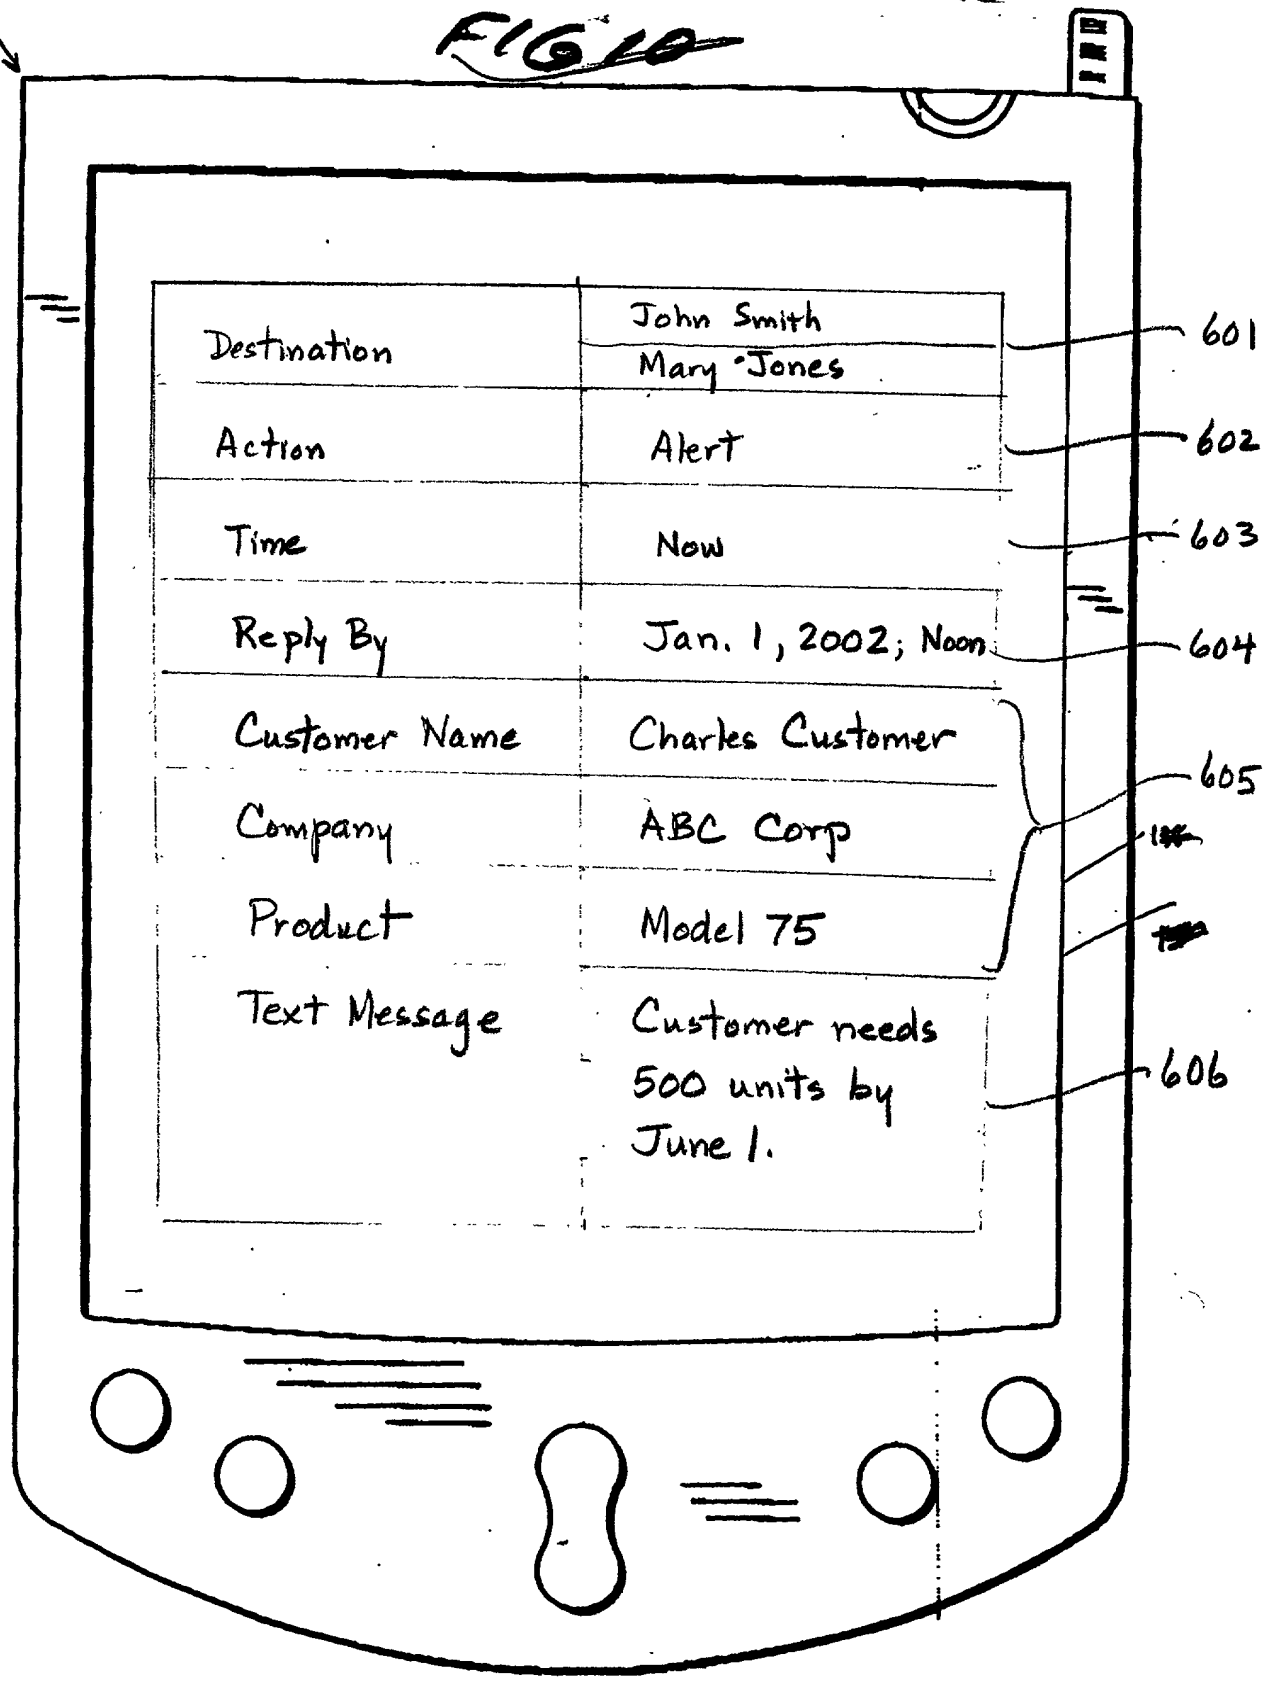 FIG 10
Destination John Smith
Mary Jones
601
Action Alert
602
Time Now
603
Reply By Jan. 1, 2002; Noon
604
Customer Name Charles Customer
605
Company ABC Corp
Product Model 75
Text Message Customer needs
500 units by
June 1.
606